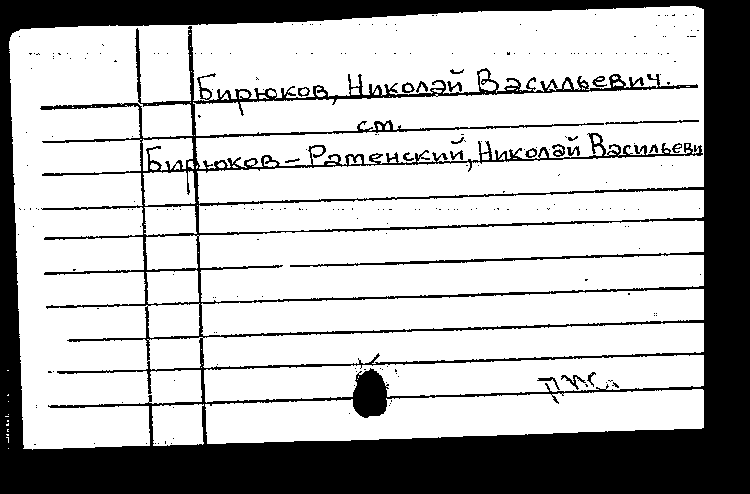 Бирюков, Николай Васильевич.
см.
Бирюков-Ратенский, Николай Васильеви